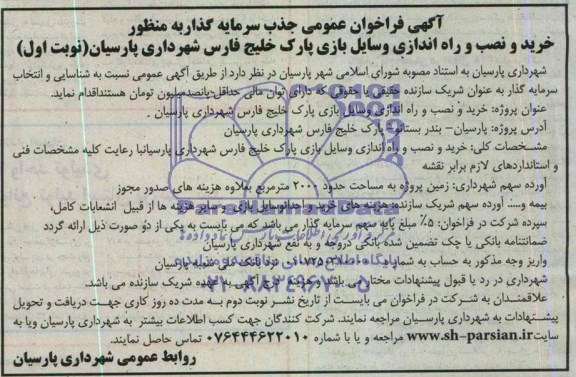 آگهی فراخوان عمومی جذب سرمایه گذاربه منظور
خرید و نصب و راه اندازی وسایل بازی پارک خلیج فارس شهرداری پارسیان(نوبت اول)
شهرداری پارسیان به استناد مصوبه شورای اسلامی شهر پارسیان در نظر دارد از طریق آگهی عمومی نسبت به شناسایی و انتخاب
سرمایه گذار به عنوان شریک سازنده حقیقی یا حقوقی که دارای توان مالی حداقل پانصدمیلیون تومان هستنداقدام نماید.
عنوان پروژه: خرید و نصب و راه اندازی وسایل بازی پارک خلیج فارس شهرداری پارسیان .
آدرس پروژه: پارسیان– بندر بستانو– پارک خلیج فارس شهرداری پارسیان
مشخصات کلی: خرید و نصب و راه اندازی وسایل بازی پارک خلیج فارس شهرداری پارسیانبا رعایت کلیه مشخصات فنی
و استانداردهای لازم برابر نقشه
آورده سهم شهرداری: زمین پروژه به مساحت حدود ۲۰۰۰ مترمربع بعلاوه هزینه های صدور مجوز
بیمه و.... آورده سهم شریک سازنده: هزینه های خرید و احداثوسایل بازی و سایر هزینه ها از قبیل انشعابات کامل،
سپرده شرکت در فراخوان: ۵٪ مبلغ پایه سهم سرمایه گذار می باشد که می بایست به یکی از دو صورت ذیل ارائه گردد
ضمانتنامه بانکی یا چک تضمین شده بانکی دروجه و به نفع شهرداری پارسیان
واریز وجه مذکور به حساب شماره نزد بانک ملی شعبه پارسیان
شهرداری در رد یا قبول پیشنهادات مختار می باشد و هزینه درج آگهی به عهده شریک سازنده می باشد.
علاقمندان به شرکت در فراخوان می بایست از تاریخ نشر نوبت دوم به مدت ده روز کاری جهت دریافت و تحویل
پیشنهادات به شهرداری پارسیان مراجعه نمایند. شرکت کنندگان جهت کسب اطلاعات بیشتر به شهرداری پارسیان ویا به
سایت www.sh-parsian.ir مراجعه و یا با شماره ۰۷۶۴۴۴۶۲۲۰۱۰ تماس حاصل نمایند.
روابط عمومی شهرداری پارسیان